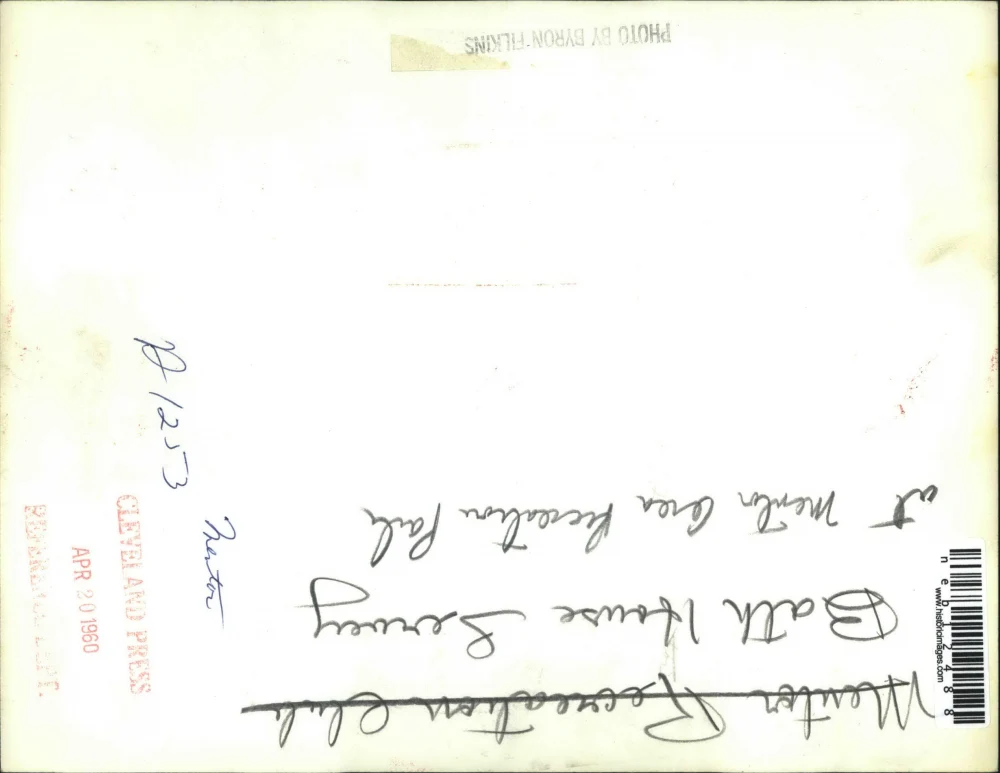 Mentor Recreation Club
Bath House
at Mentor Area Recreation Park
PHOTO BY BYRON FILKINS
Mentor
1253
CLEVELAND PRESS
APR 20 1960
REFERENCE DEPT.
www.historicimages.com
n e b 1 2 4 8 8